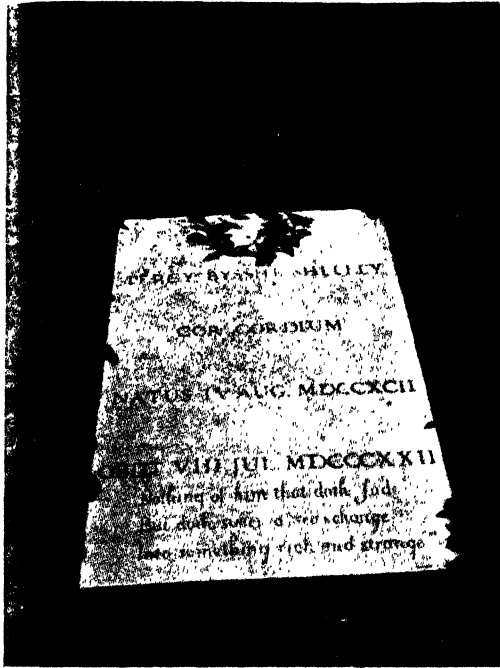 PERCY BYSSHE SHELLEY
COR CORDIUM
NATUS IV AUG. MDCCXCII
OBIIT VIII JUL. MDCCCXXII
Nothing of him that doth fade
But doth suffer a sea change
Into something rich and strange